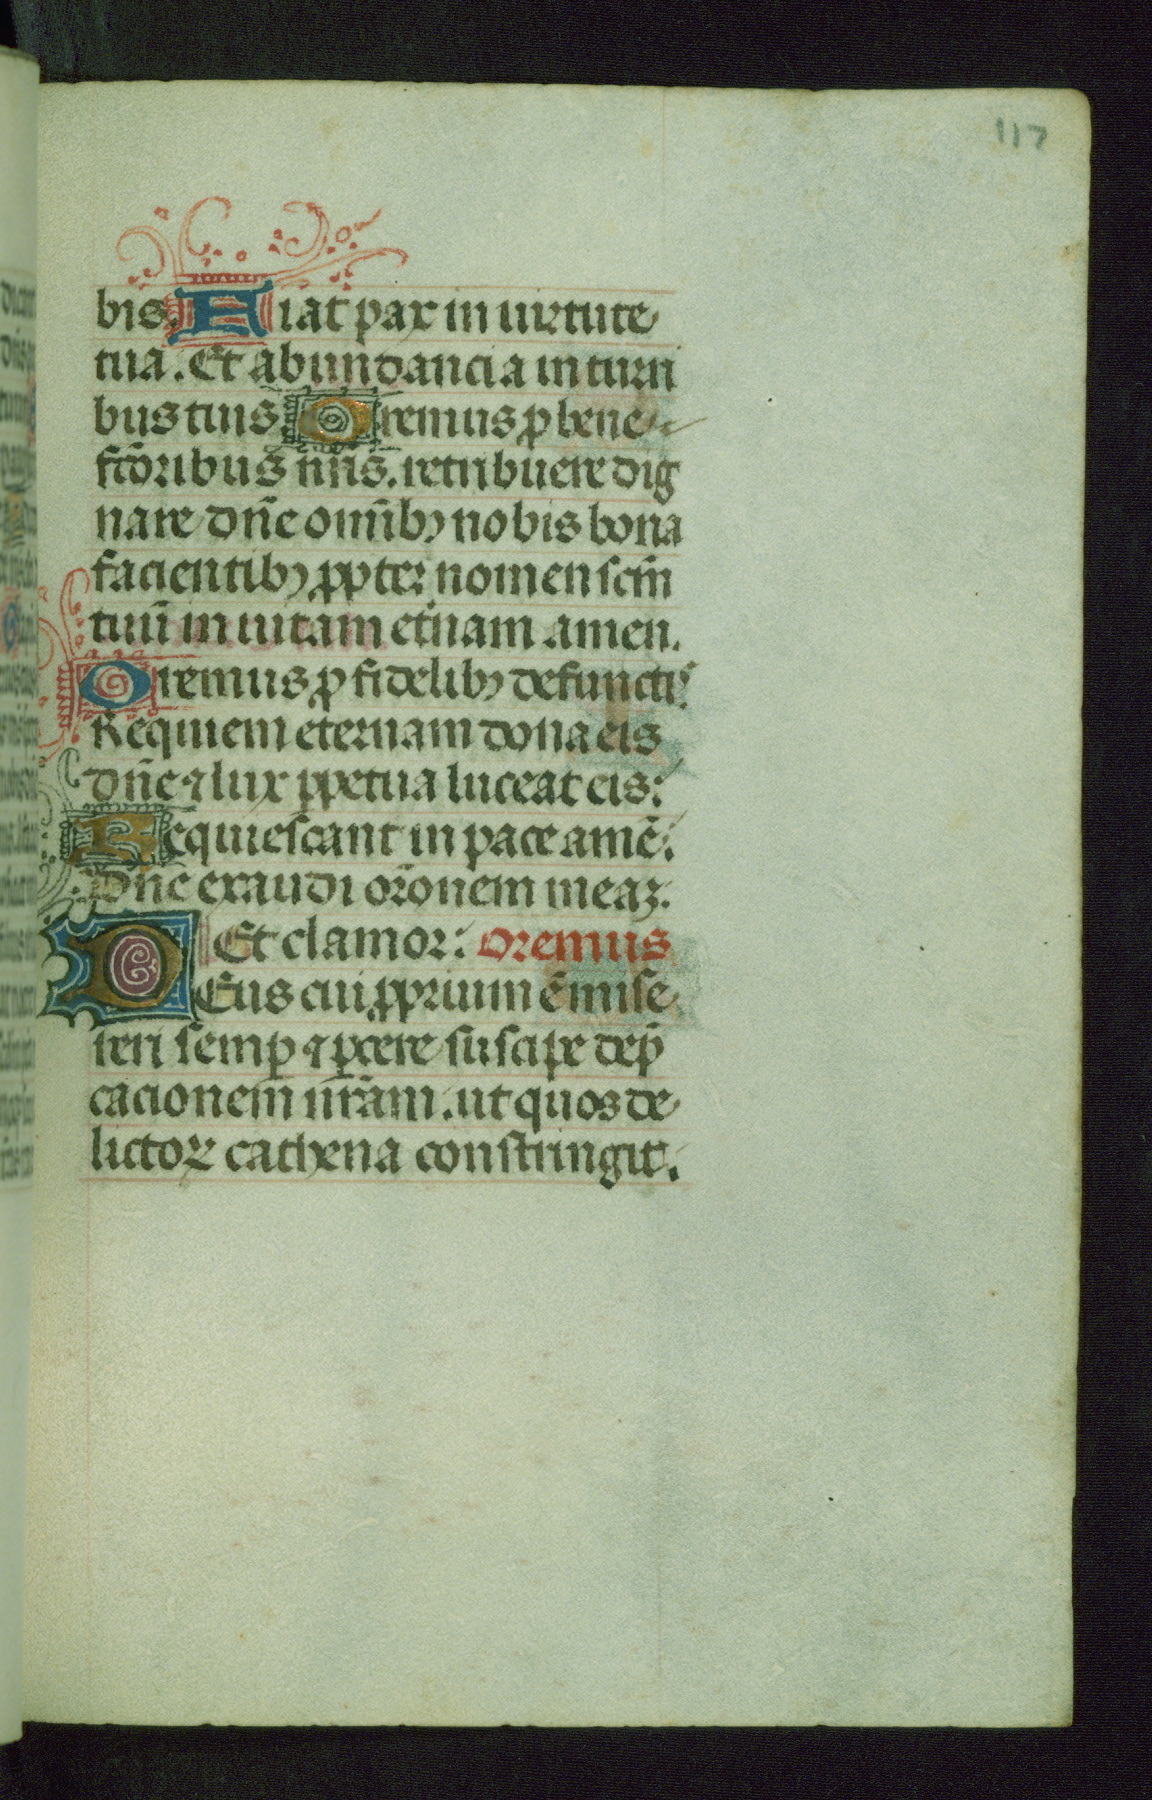 117
bis. Fiat pax in uirtute
tua. Et abundancia in turri
bus tuis. Oremus ꝓ bene
fc̄oribus nr̄is. retribuere dig
nare dn̄e om̄ibꝫ nobis bona
facientibꝫ ꝓpter nomen scm̄
tuū in uitam et̄nam amen.
Oremus ꝓ fidelibꝫ defunctis
Requiem eternam dona eis
dn̄e ⁊ lux ꝑpetua luceat eis:
Requiescant in pace amē.
Dn̄e exaudi or̄onem meaꝫ.
Et clamor: oremus
Deus cui ꝓprium ē mise
reri semꝑ ⁊ ꝑcere suscipe dep̄
cacionem nr̄am. ut quos de
lictoꝝ cathena constringit.